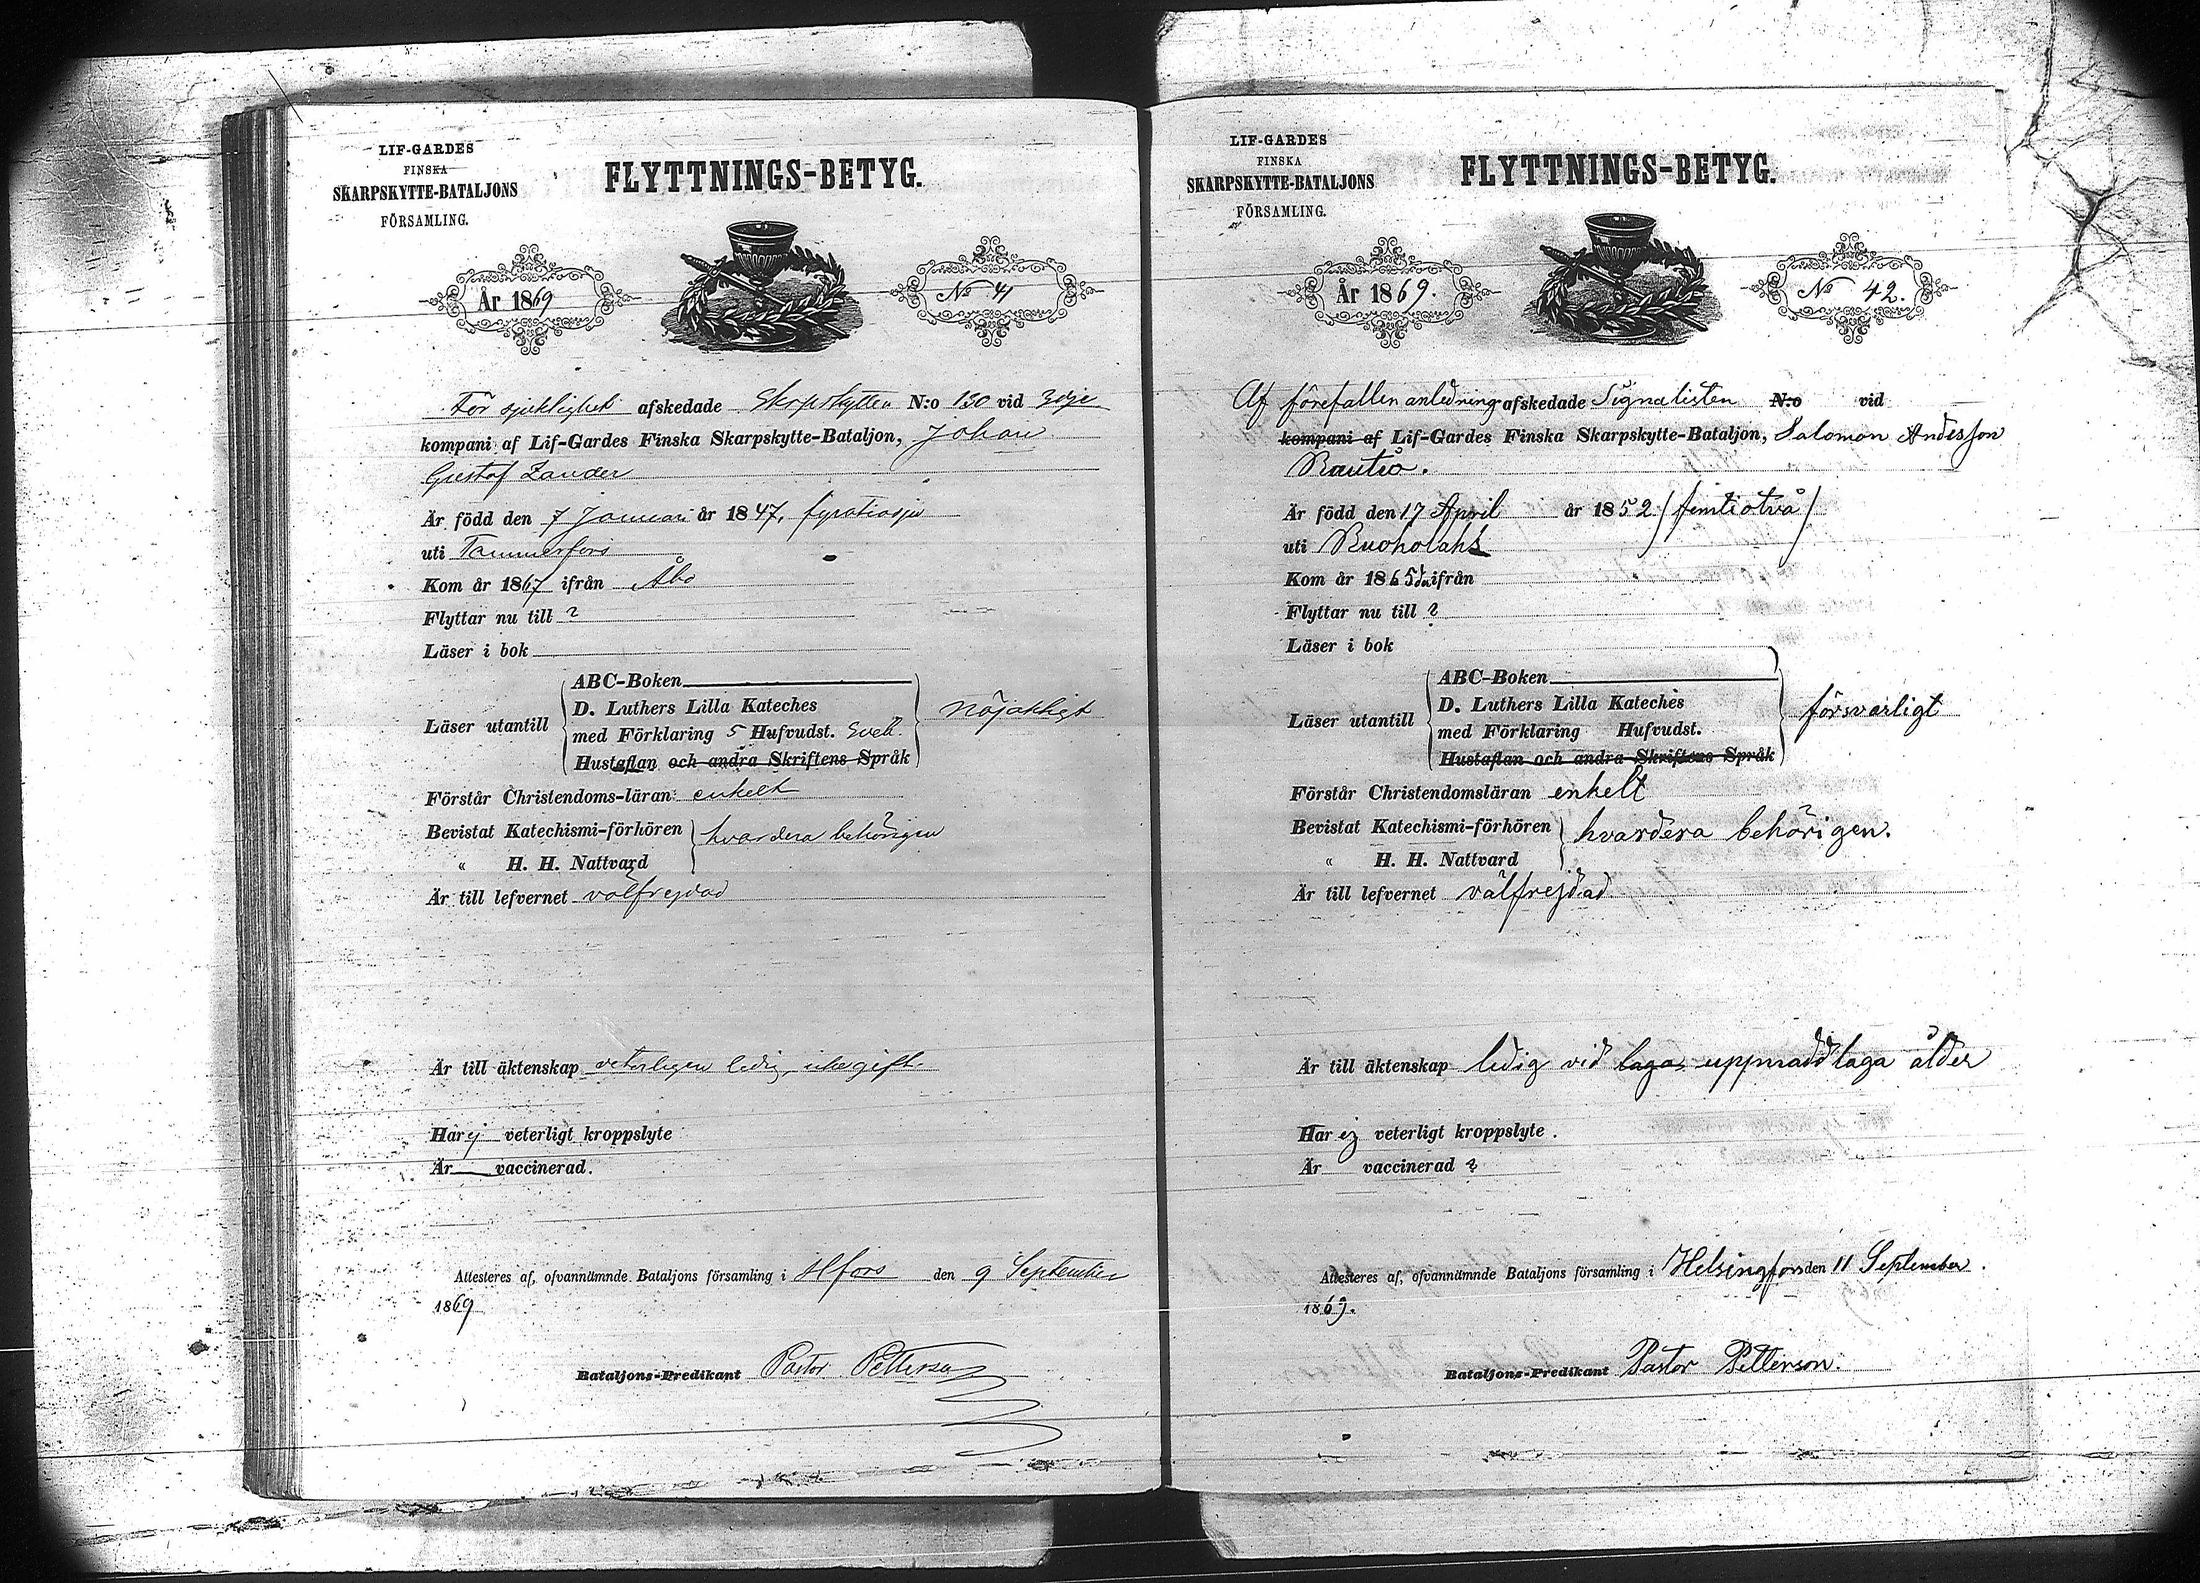 LIF-GARDES
FINSKA
SKARPSKYTTE-BATALJONS
FÖRSAMLING.
FLYTTNINGS-BETYG.
År 1869
No 41
För sjuklighet afskedade Skarpskytten N:o 130 vid 3dje
kompani af Lif-Gardes Finska Skarpskytte-Bataljon, Johan
Gustaf Zander
Är född den 7 Januari år 1847, fyratiosju
uti Tammerfors
Kom år 1867 ifrån Åbo
Flyttar nu till ?
Läser i bok
Läser utantill
ABC-Boken
D. Luthers Lilla Kateches
med Förklaring 5 Hufvudst. Sveb.
Hustaflan och andra Skriftens Språk
nöjaktigt
Förstår Christendoms-läran: enkelt
Bevistat Katechismi-förhören
" H. H. Nattvard
hvardera behörigen
Är till lefvernet välfrejdad
Är till äktenskap veterligen ledig, ickegift.
Har ej veterligt kroppslyte
Är vaccinerad.
Attesteres af, ofvannämnde Bataljons församling i Hfors den 9 September
1869
Bataljons-Predikant Pastor Petterson
LIF-GARDES
FINSKA
SKARPSKYTTE-BATALJONS
FÖRSAMLING.
FLYTTNINGS-BETYG.
År 1869.
No 42.
Af förefallen anledning afskedade Signalisten N:o vid
kompani af Lif-Gardes Finska Skarpskytte-Bataljon, Salomon Andersson
Rautio.
Är född den 17 April år 1852 / femtiotvå /
uti Ruoholaks
Kom år 1865 ifrån
Flyttar nu till ?
Läser i bok
Läser utantill
ABC-Boken
D. Luthers Lilla Kateches
med Förklaring Hufvudst.
Hustaflan och andra Skriftens Språk
försvarligt
Förstår Christendomsläran enkelt
Bevistat Katechismi-förhören
" H. H. Nattvard
hvardera behörigen.
Är till lefvernet välfrejdad
Är till äktenskap ledig vid laga uppnadd laga ålder
Har ej veterligt kroppslyte.
Är vaccinerad ?
Attesteres af, ofvannämnde Bataljons församling i Helsingfors den 11 September.
1869.
Bataljons-Predikant Pastor Petterson.